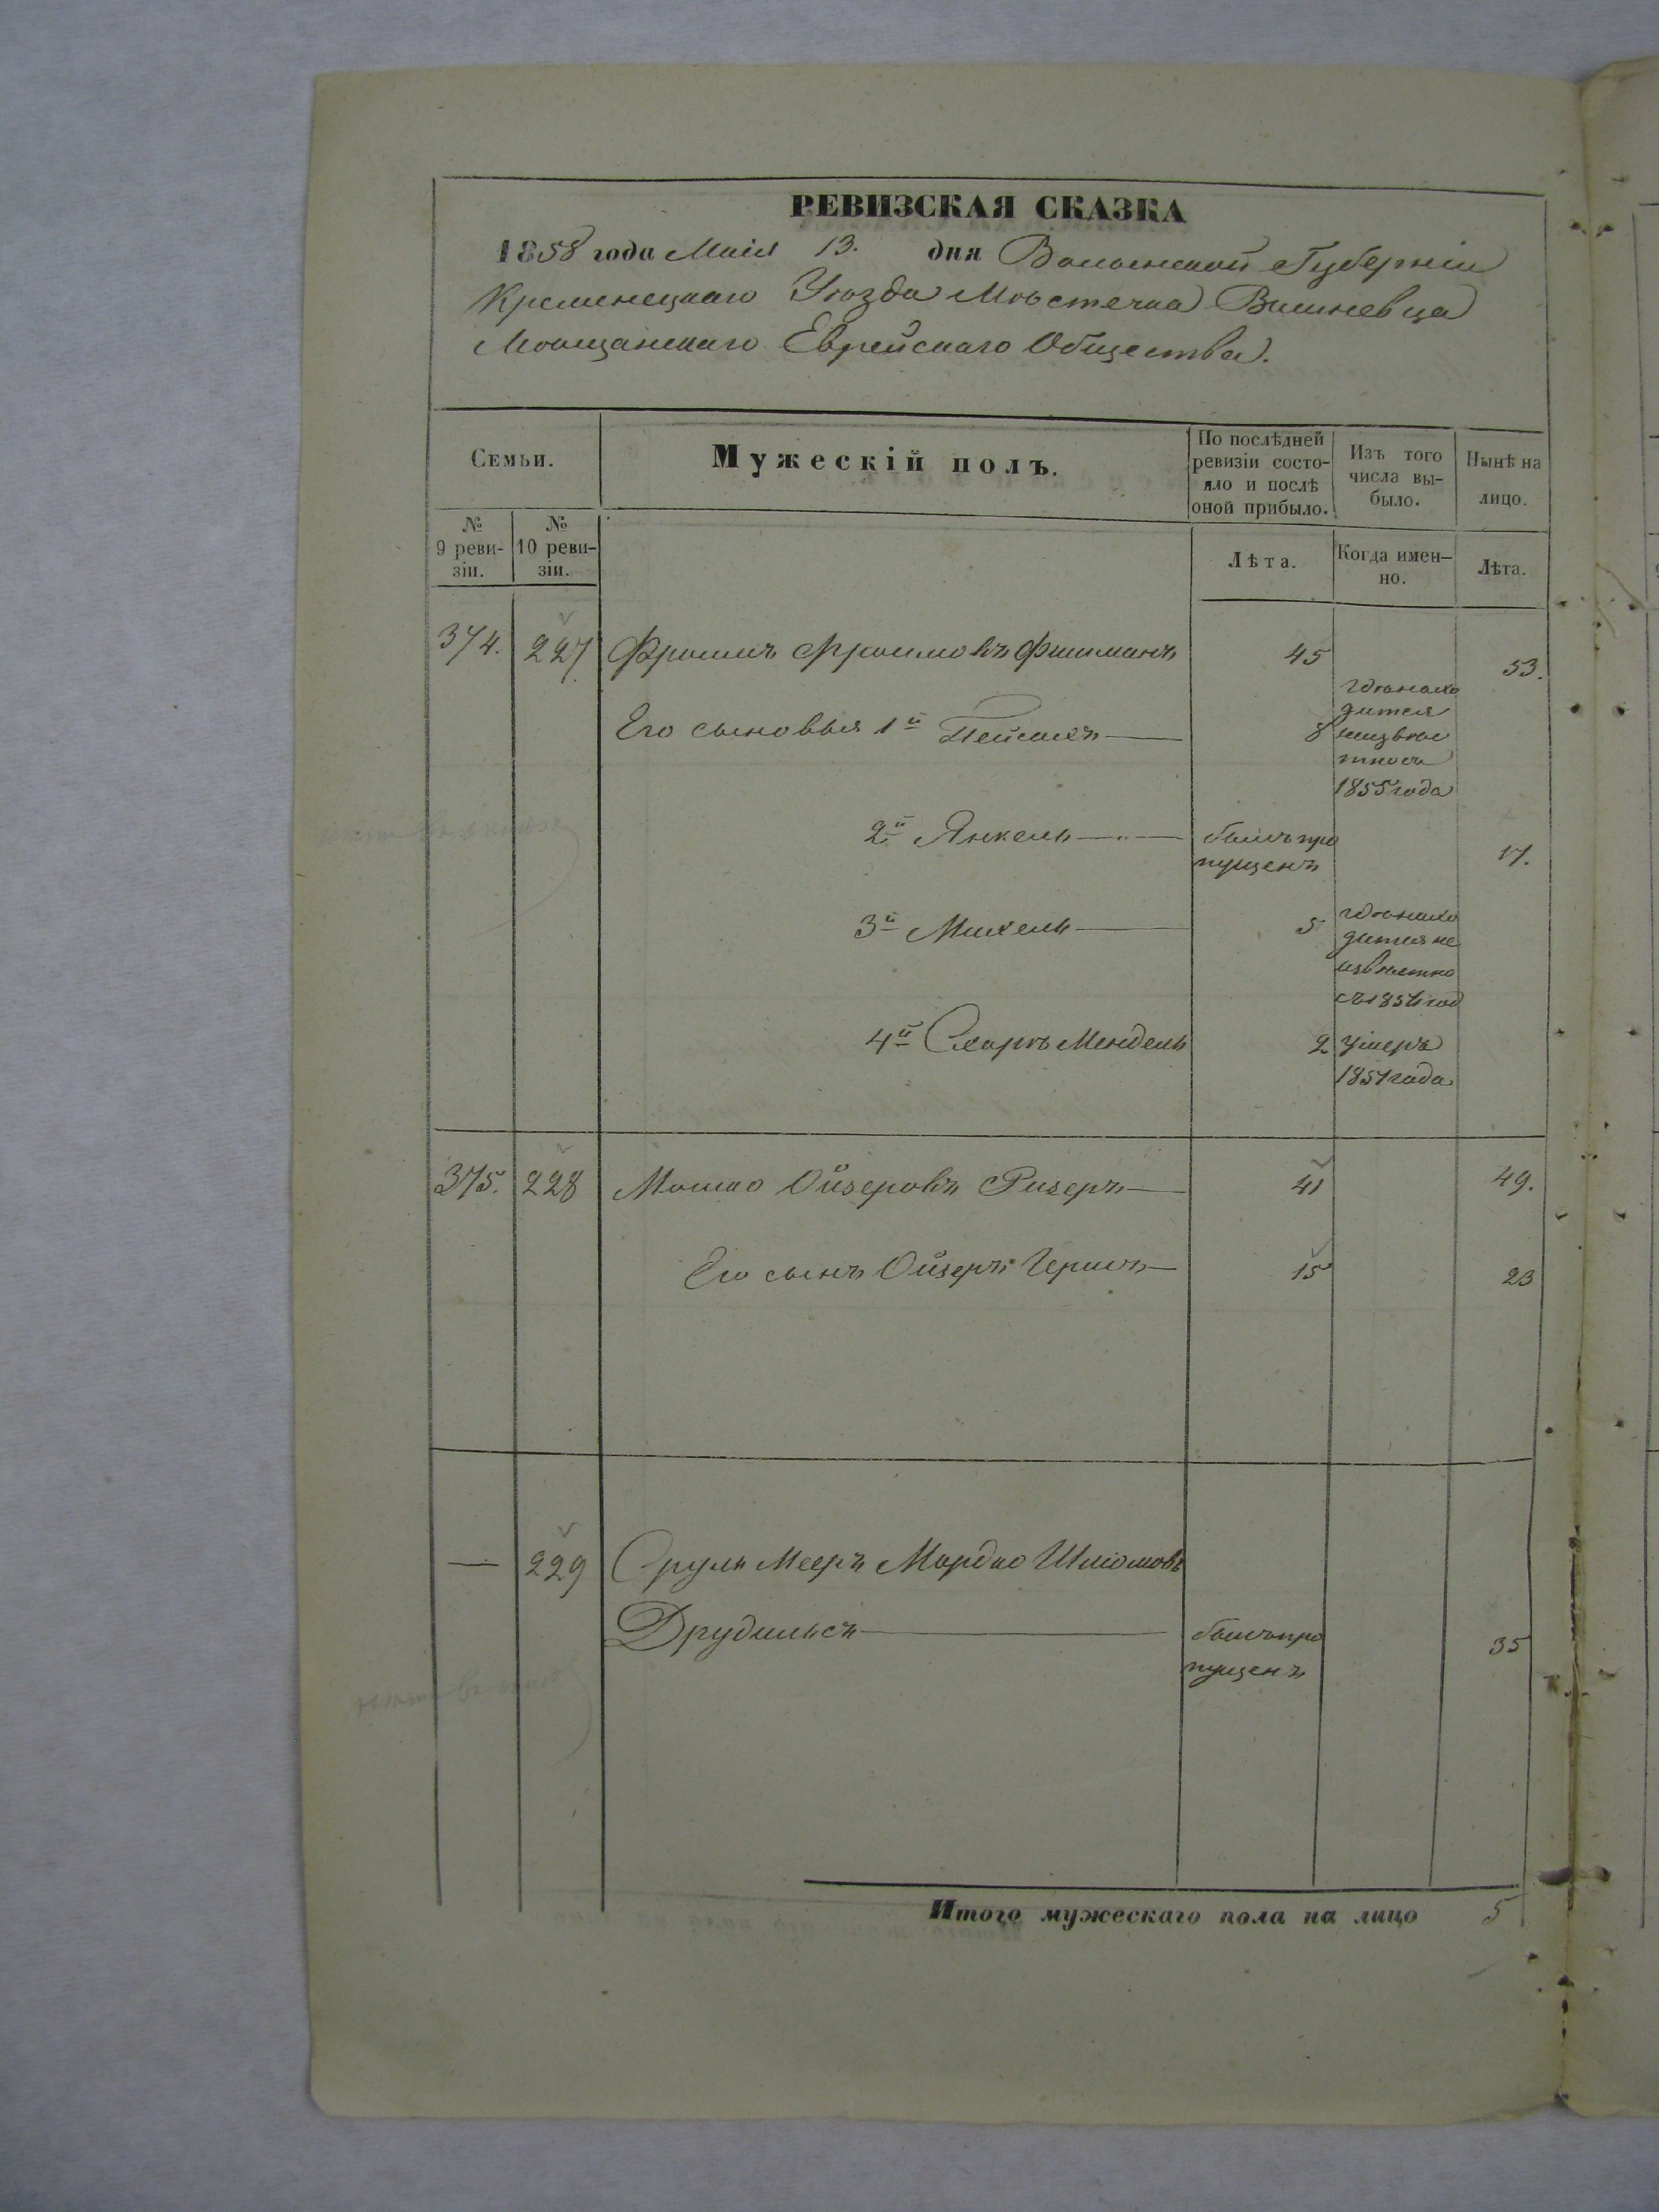 РЕВИЗСКАЯ СКАЗКА
1858 года Маія 13. дня Волынской Губерніи
Кременецкаго Уѣзда Мѣстечка Вишневца
Мѣщанскаго Еврейскаго Общества.
Семьи.
Мужескій полъ.
По послѣдней
ревизіи состо-
яло и послѣ
оной прибыло.
Изъ того
числа вы-
было.
Нынѣ на
лицо.
№
9 реви-
зіи.
№
10 реви-
зіи.
Лѣта.
Когда имен-
но.
Лѣта.
374. 227 Фроимъ Фроимовъ Фишманъ 45 53.
Его сыновья 1й Пейсахъ 8
гдѣ нахо
дится
неизвѣс
тно съ
1855 года
2й Янкель
былъ про
пущенъ
17.
3й Михель 5
гдѣ нахо
дится не
извѣстно
4й Мендель 2 умеръ
1857 года
375. 228 Мошко Ойзеровъ Ризеръ 41 49.
Его сынъ Ойзеръ Гершъ 15 23
— 229 Сруль Мееръ Мордко Шліомовъ
Друдильсъ
былъ про
пущенъ
35
Итого мужескаго пола на лицо 5